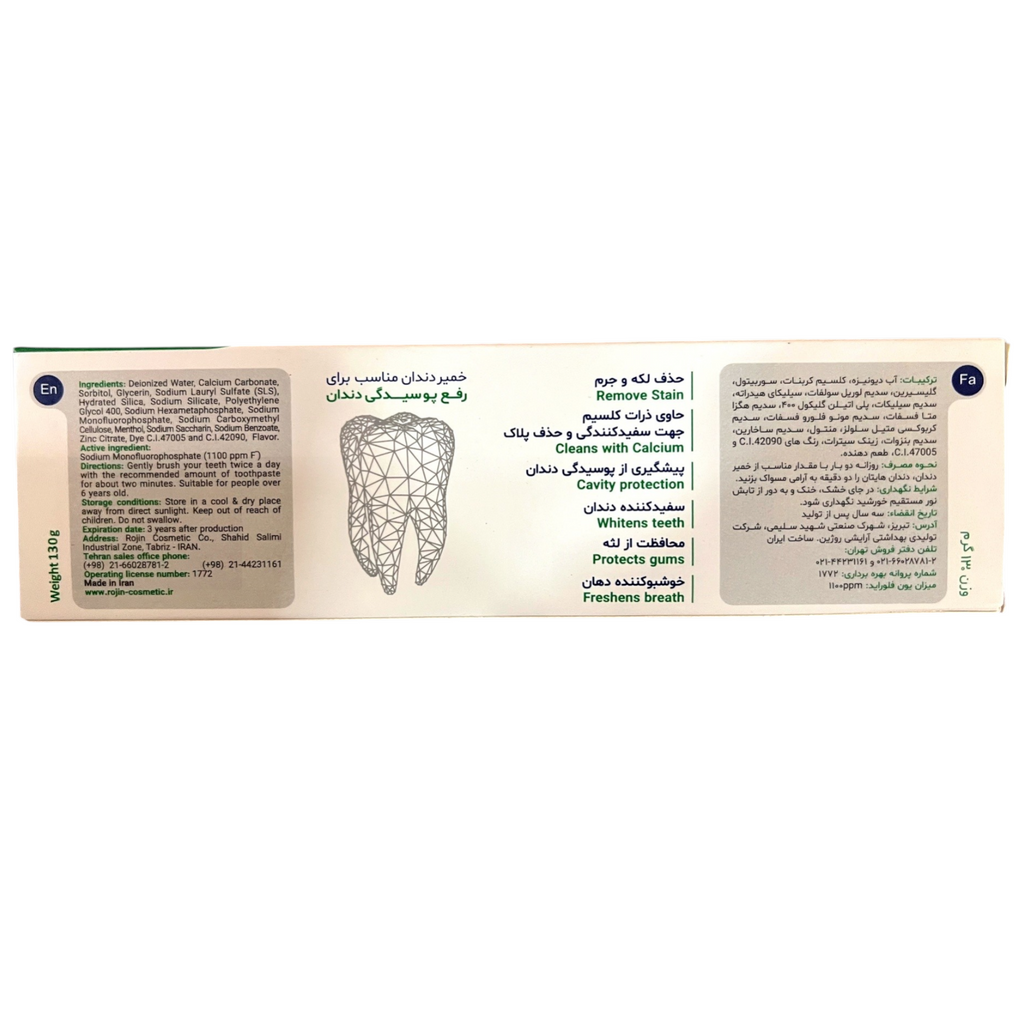 En
Ingredients: Deionized Water, Calcium Carbonate,
Sorbitol, Glycerin, Sodium Lauryl Sulfate (SLS),
Hydrated Silica, Sodium Silicate, Polyethylene
Glycol 400, Sodium Hexametaphosphate, Sodium
Monofluorophosphate, Sodium Carboxymethyl
Cellulose, Menthol, Sodium Saccharin, Sodium Benzoate,
Zinc Citrate, Dye C.I.47005 and C.I.42090, Flavor.
Active ingredient:
Sodium Monofluorophosphate (1100 ppm F⁻)
Directions: Gently brush your teeth twice a day
with the recommended amount of toothpaste
for about two minutes. Suitable for people over
6 years old.
Storage conditions: Store in a cool & dry place
away from direct sunlight. Keep out of reach of
children. Do not swallow.
Expiration date: 3 years after production
Address: Rojin Cosmetic Co., Shahid Salimi
Industrial Zone, Tabriz - IRAN.
Tehran sales office phone:
(+98) 21-66028781-2 (+98) 21-44231161
Operating license number: 1772
Made in Iran
www.rojin-cosmetic.ir
Weight 130g
خمیر دندان مناسب برای
رفـع پوسیــدگی دندان
حذف لکه و جرم
Remove Stain
حاوی ذرات کلسیم
جهت سفیدکنندگی و حذف پلاک
Cleans with Calcium
پیشگیری از پوسیدگی دندان
Cavity protection
سفیدکننده دندان
Whitens teeth
محافظت از لثه
Protects gums
خوشبوکننده دهان
Freshens breath
Fa
ترکیبات: آب دیونیزه، کلسیم کربنات، سوربیتول،
گلیسیرین، سدیم لوریل سولفات، سیلیکای هیدراته،
سدیم سیلیکات، پلی اتیلن گلیکول ۴۰۰، سدیم هگزا
متا فسفات، سدیم مونو فلورو فسفات، سدیم
کربوکسی متیل سلولز، منتول، سدیم ساخارین،
سدیم بنزوات، زینک سیترات، رنگ های C.I.42090 و
C.I.47005، طعم دهنده.
نحوه مصرف: روزانه دو بار با مقدار مناسب از خمیر
دندان، دندان هایتان را دو دقیقه به آرامی مسواک بزنید.
شرایط نگهداری: در جای خشک، خنک و به دور از تابش
نور مستقیم خورشید نگهداری شود.
تاریخ انقضاء: سه سال پس از تولید
آدرس: تبریز، شهرک صنعتی شهید سلیمی، شرکت
تولیدی بهداشتی آرایشی روژین. ساخت ایران
تلفن دفتر فروش تهران:
۰۲۱-۶۶۰۲۸۷۸۱-۲ و ۰۲۱-۴۴۲۳۱۱۶۱
شماره پروانه بهره برداری: ۱۷۷۲
میزان یون فلوراید: ۱۱۰۰ppm
وزن ۱۳۰ گرم